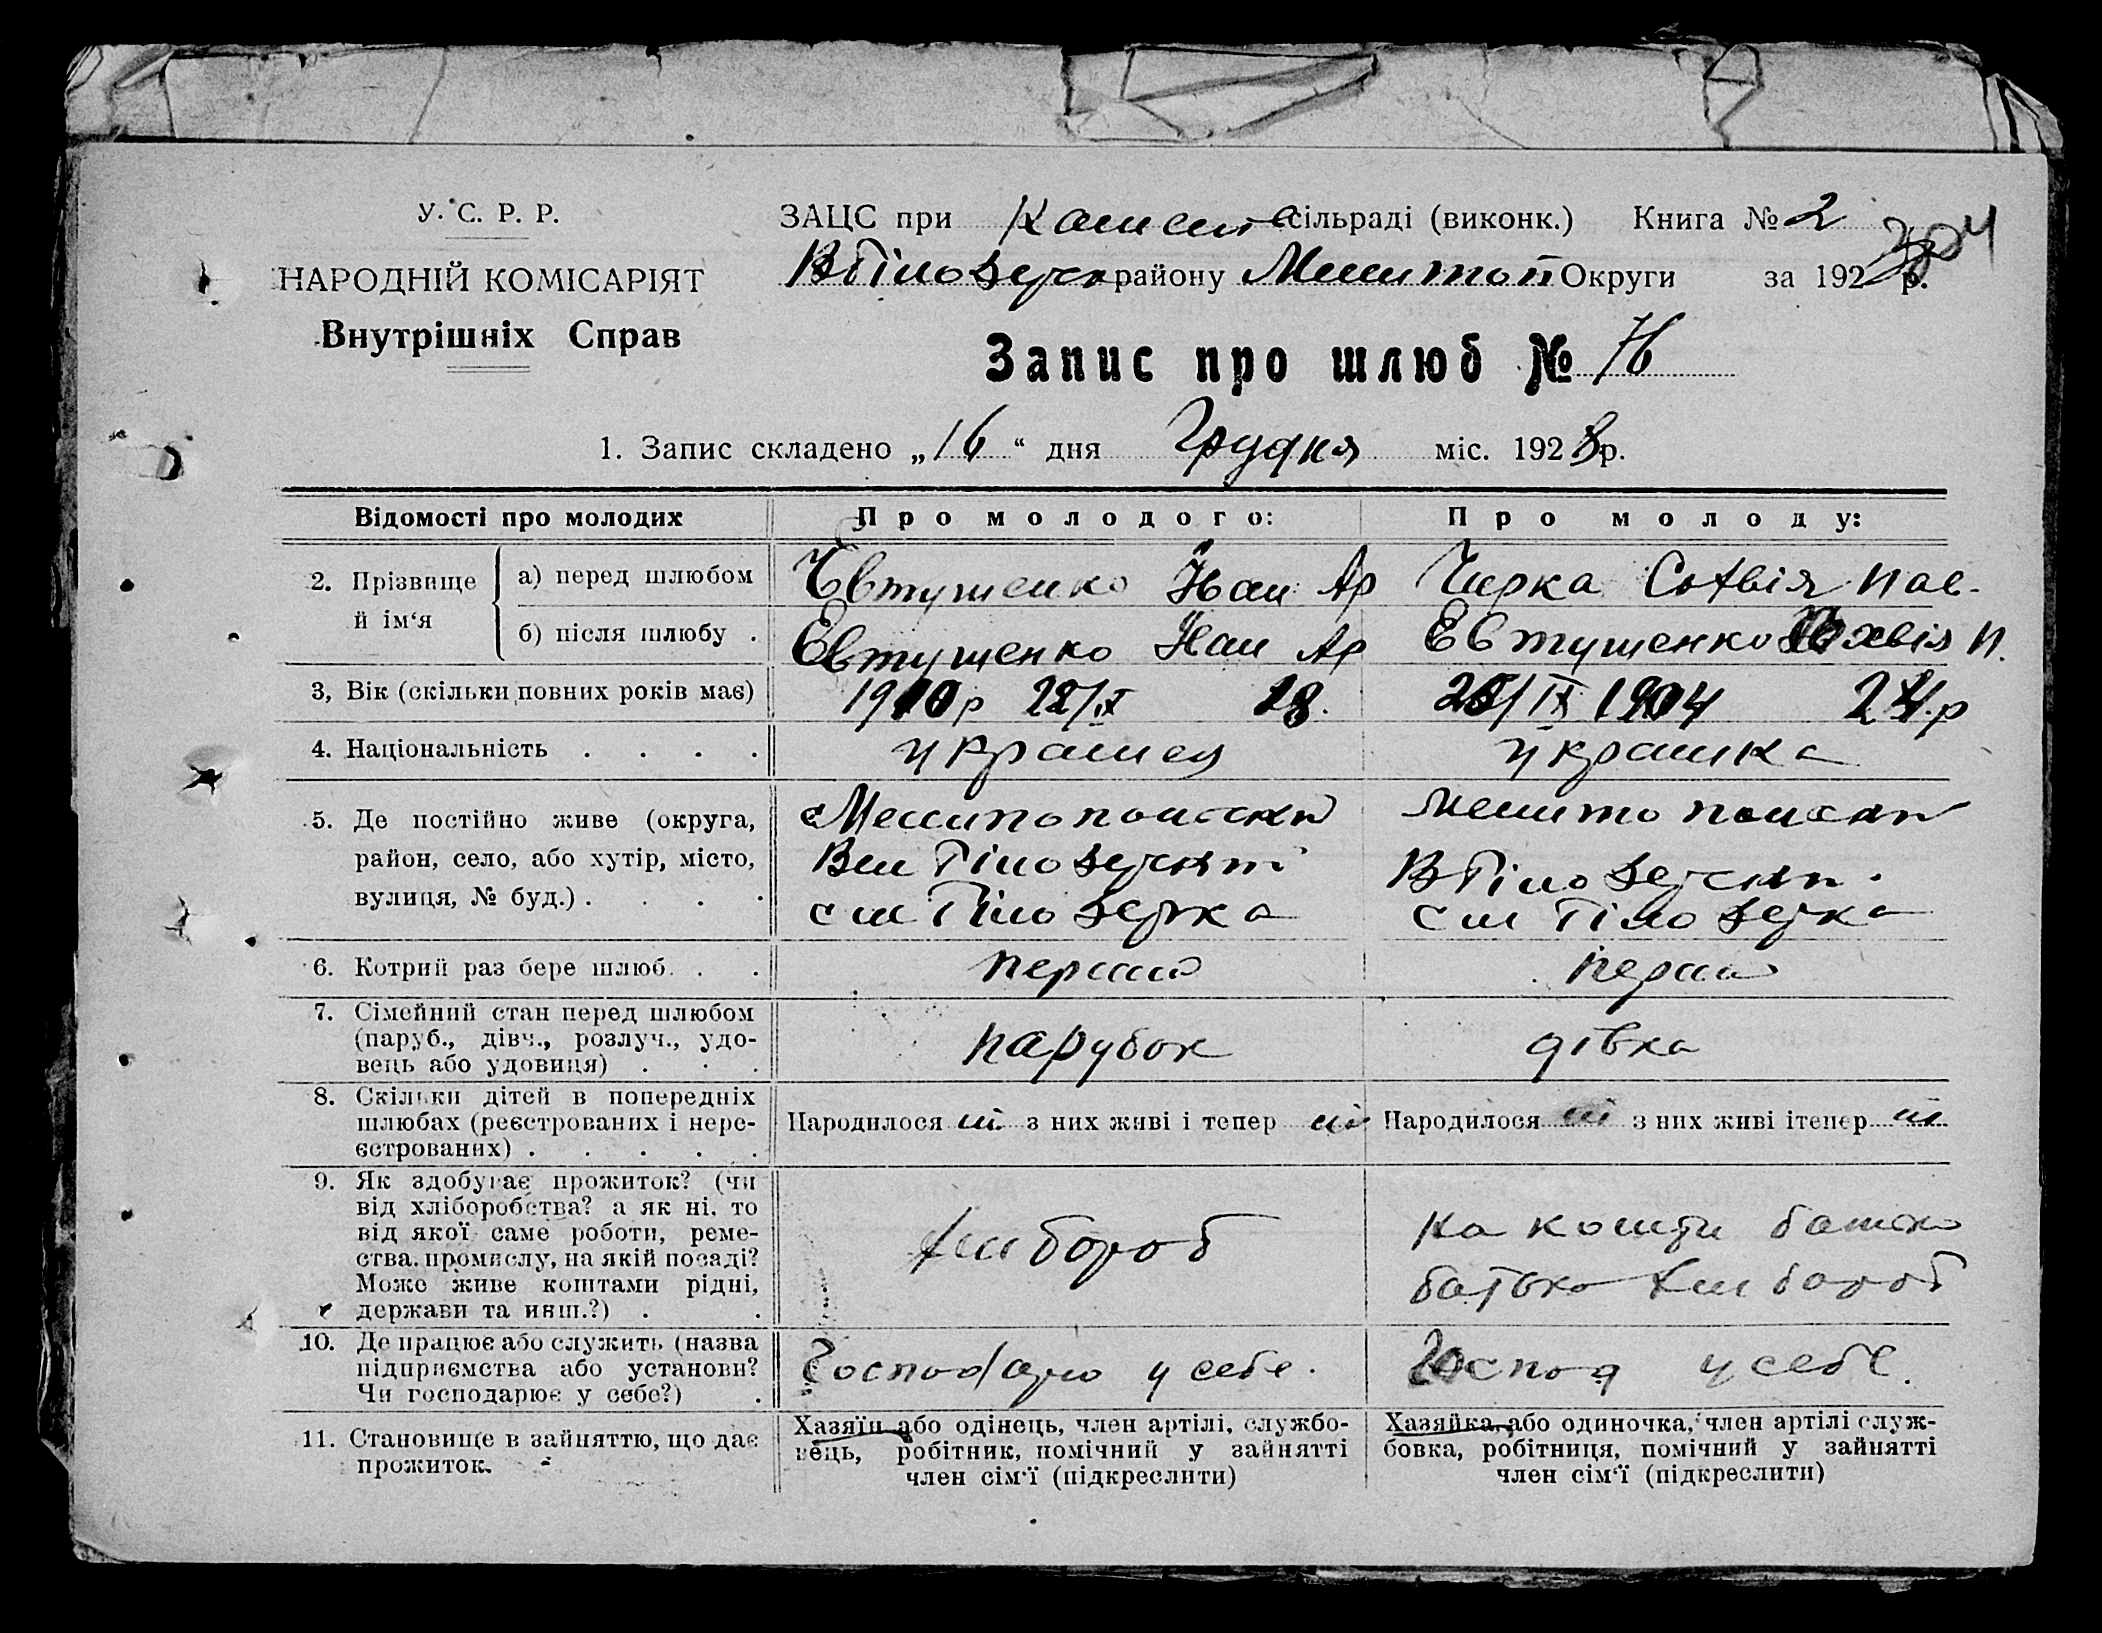 У. С. Р. Р.
НАРОДНІЙ КОМІСАРІЯТ
Внутрішніх Справ
ЗАЦС при сільраді (виконк.) Книга № 2
304
району Мелитоп Округи за 192 р.
Запис про шлюб № 76
1. Запис складено „16“ дня Грудня міс. 1928 р.
Відомості про молодих
Про молодого:
Про молоду:
2. Прізвище й ім‘я
а) перед шлюбом
Євтушенко Иван Ар
Чирка Пав.
б) після шлюбу .
Евтушенко Иван Ар
Евтушенко П.
3, Вік (скільки повних років має)
1910 р 22/X 18.
/IX 1904 24.р
4. Національність . . . .
украинец
украинка
5. Де постійно живе (округа,
район, село, або хутір, місто,
вулиця, № буд.) . . . .
Мелитопольский
Вел Білозерский
сел Білозерка
Мелитопольский
В Білозерский.
сел Білозерка
6. Котрий раз бере шлюб. . .
перший
перший
7. Сімейний стан перед шлюбом
(паруб., дівч., розлуч., удо-
вець або удовиця) . . .
парубок
дівка
8. Скільки дітей в попередніх
шлюбах (реєстрованих і нере-
єстрованих) . . . . .
Народилося ні з них живі і тепер ні
Народилося ні з них живі ітепер ні
9. Як здобуває прожиток? (чи
від хліборобства? а як ні, то
від якої саме роботи, реме-
ства, промислу, на якій посаді?
Може живе коштами рідні,
держави та инш.?) . .
хлибороб
на кошти батько
батько хлибороб
10. Де працює або служить (назва
підприємства або установи?
Чи господарює у себе?) .
Господарю у себе.
Господ у себе.
11. Становище в зайняттю, що дає
прожиток.
Хазяїн або одінець, член артілі, службо-
вець, робітник, помічний у зайнятті
член сім‘ї (підкреслити)
Хазяйка, або одиночка, член артілі служ-
бовка, робітниця, помічний у зайнятті
член сім‘ї (підкреслити)